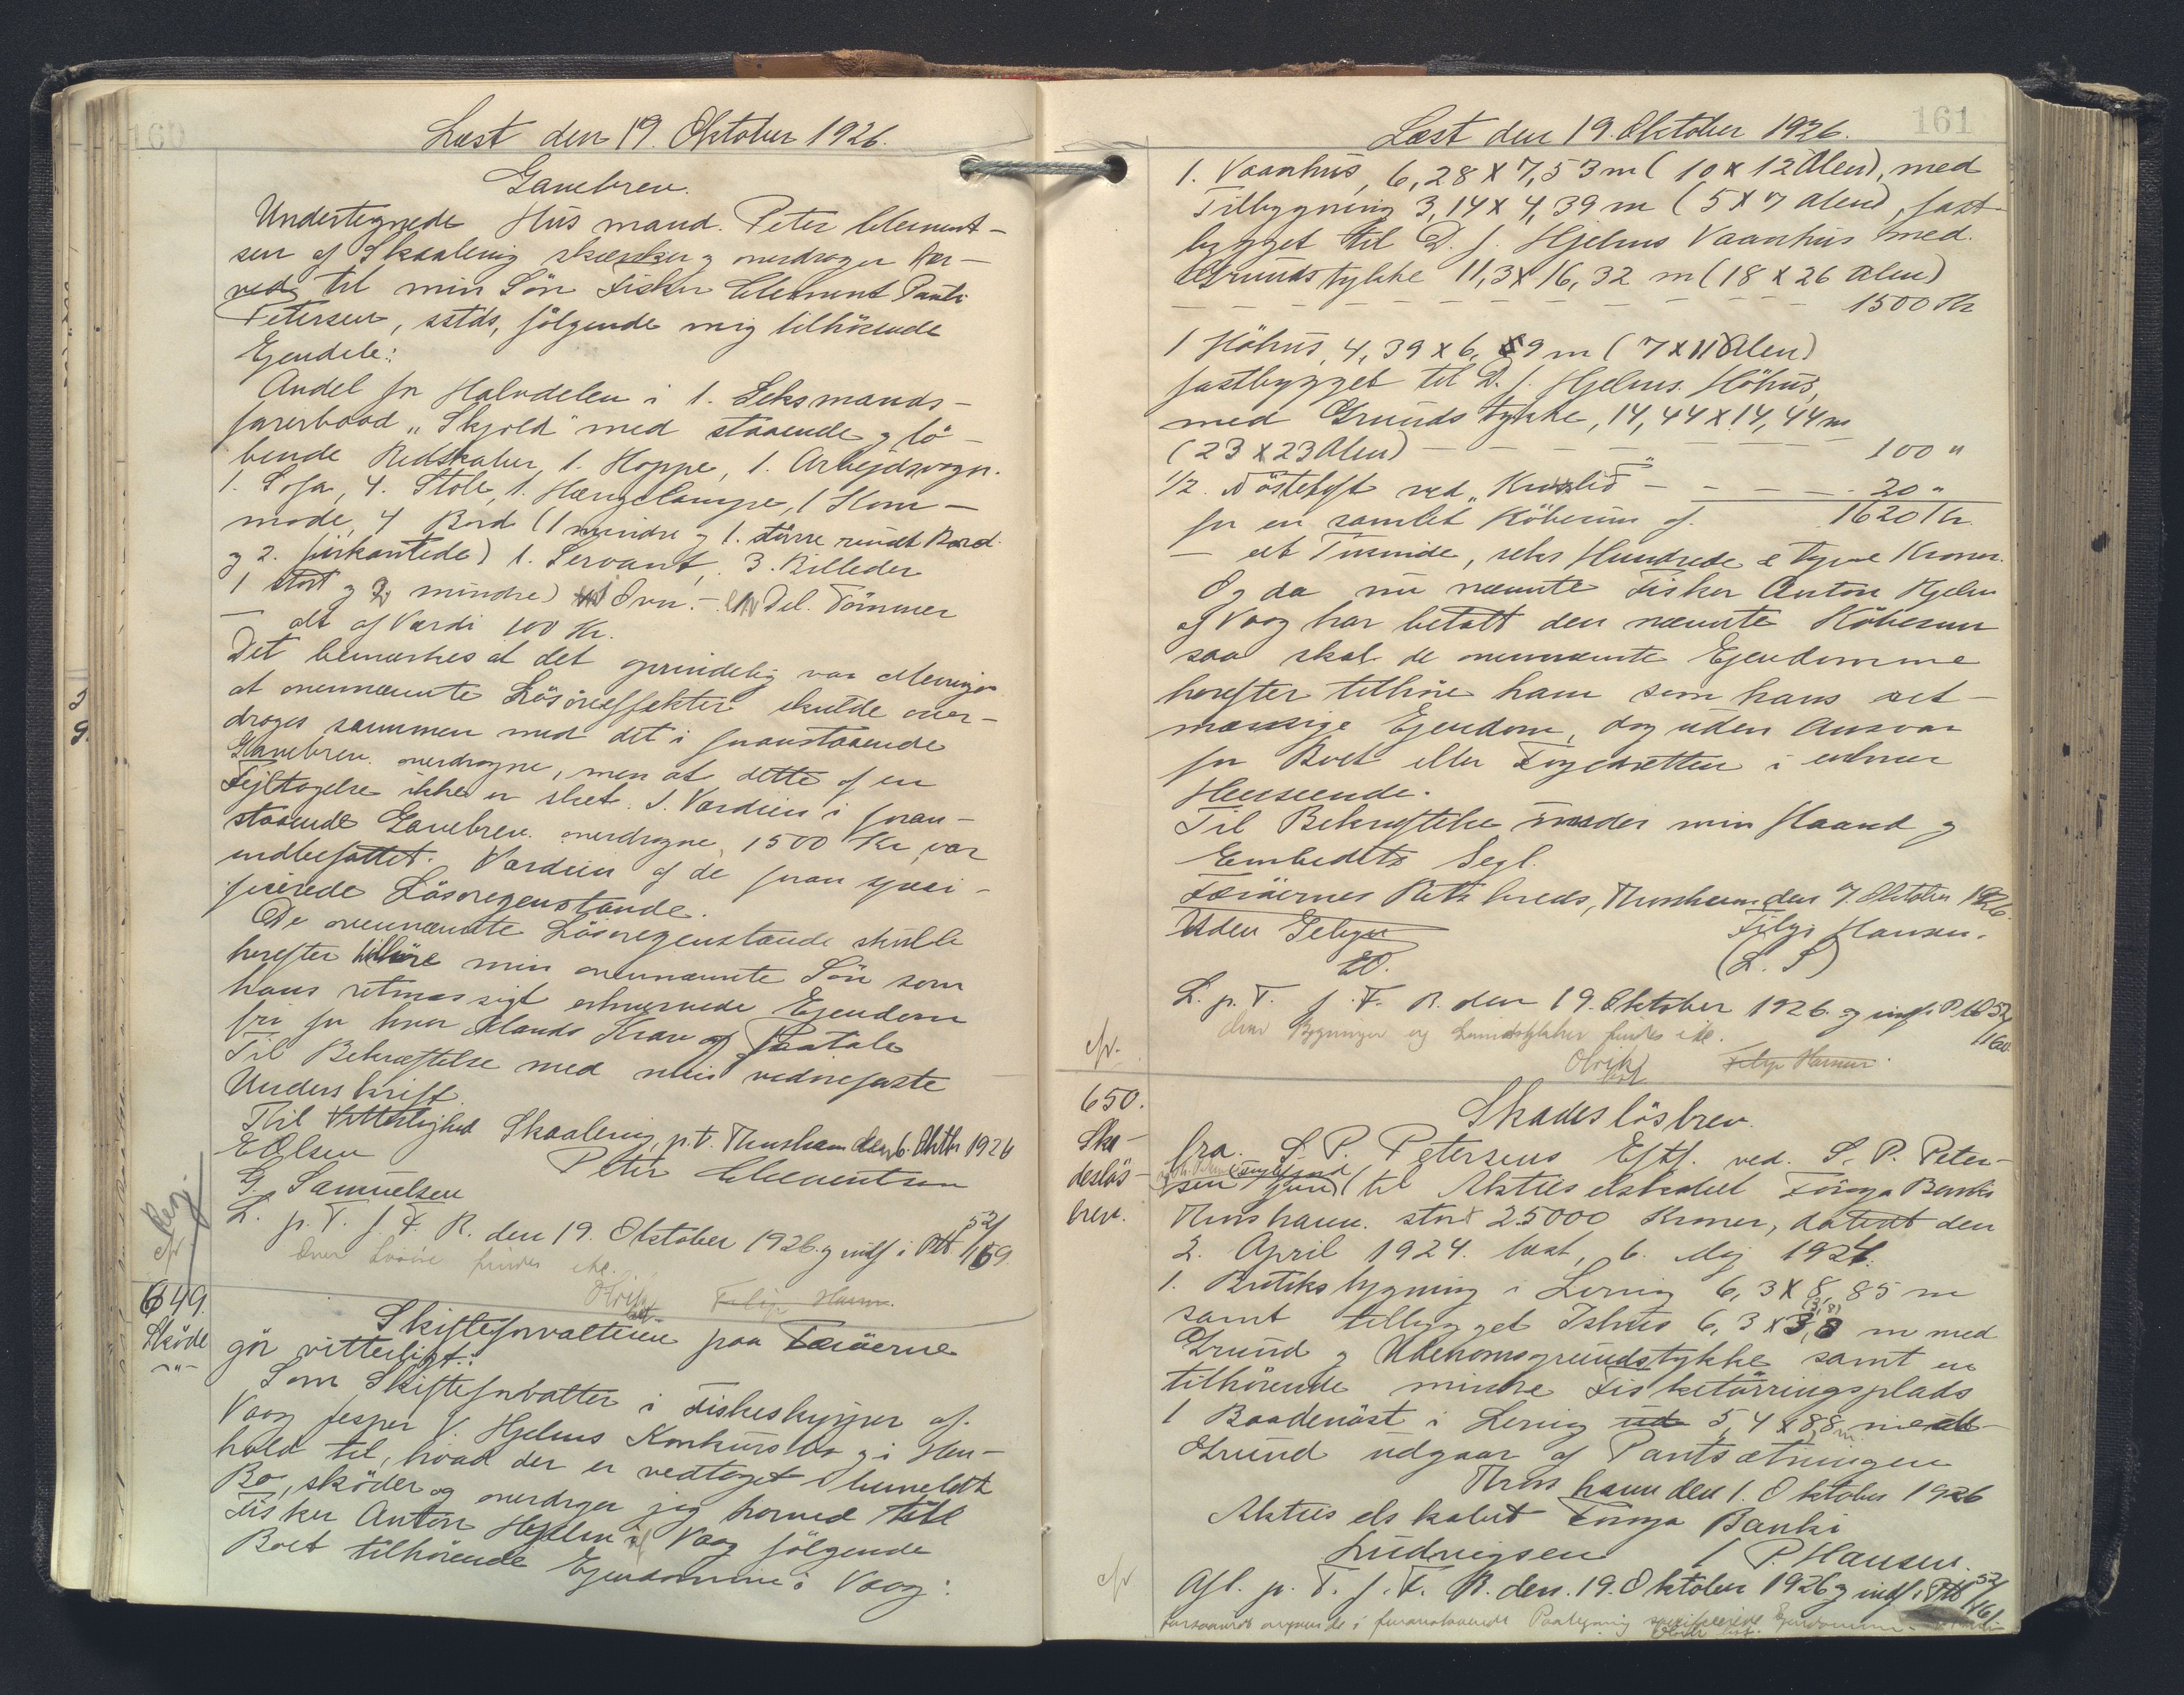 160
Læst den 19. Oktober 1926.
Gavebrev.
Undertegnede Husmand. Peter Clement-
sen af Skaaleng skænker og overdrager her-
ved til min Søn Fisker Clement Pauli
Petersen, sstds, følgende mig tilhørende
Ejendele:
Andel for Halvdelen i 1. Seksmands-
farerbaad „Skjold" med staaende og lø-
bende Redskaber, 1. Hoppe, 1. Arbejdsvogn.
1. Sofa, 4. Stole, 1. Hængelampe, 1 Kom-
mode, 4 Bord (1 mindre og 1. større rundt Bord
og 2. firkantede) 1. Servant, 3. Billeder
1 stort og 2 mindre) Ovn. - en Del. Tømmer
- alt af Værdi 100 Kr.
Det bemærkes at det oprindelig var Meningen
at ovennævnte Løsøreeffekter skulde over-
drages sammen med det i foranstaaende
Gavebrev. overdragne, men at dette af en
Fejltagelse ikke er sket. I. Værdien i foran-
staaende Gavebrev. overdragne, 1500 Kr var
indbefattet. Værdien af de foran speci-
ficerede Løsøregenstande.
De ovennævnte Løsøregenstande skulle
herefter tilhøre min ovennævnte Søn som
hans retmæssigt erhvervede Ejendom
fri for hver Mands Krav og Paatale
Til Bekræftelse med min vedføjede
Underskrift.
Til Vitterlighed Skaaleng, p.t. Thorshavn den 6. Oktbr 1926
E Olsen
Peter Clementsen
G. Samuelsen
L. p. T. f. F. R. den 19. Oktober 1926. og indf i Ptb 52/159.
Over Løsøre findes ikke.
Filip Hansen.
Reg.
cfr
649.
Skøde
Skifteforvalteren paa Færøerne
gør vitterligt:
Som Skifteforvalter i Fiskeskipper af.
Vaag Jesper J. Hjelms Konkursbo og i Hen-
hold til, hvad der er vedtaget i bemeldt
Bo, skøder og overdrager jeg herved til
Fisker Anton Hjelm af Vaag følgende
Boet tilhørende Ejendomme i Vaag:
161
Læst den 19. Oktober 1926.
1. Vaanhus, 6,28 x 7,53 m (10 x 12 Alen), med
Tilbygning 3,14 x 4,39 m (5 x 7 Alen), fast-
bygget til D. J. Hjelms Vaanhus med.
Grundstykke 11,3 x 16,32 m (18 x 26 Alen)
1500 Kr
1 Høhus, 4,39 x 6,89 m (7 x 11 Alen)
fastbygget til D. J. Hjelms. Høhus,
med Grundstykke, 14,44 x 14,44 m
(23 x 23 Alen) - - - - - 100 "
1/2. Nøsteloft ved - - - - 20 "
for en samlet Købesum af. 1620 Kr.
- et Tusinde, seks Hundrede & tyve Kroner.
Og da nu nævnte Fisker Anton Hjelm
af Vaag har betalt den nævnte Købesum
saa skal de ovennævnte Ejendomme
herefter tilhøre ham som hans ret-
mæssige Ejendom, dog uden Ansvar
for Boet eller Fogedretten i enhver
Henseende.
Til Bekræftelse under min Haand og
Embedets Segl.
Færøernes Retskreds, Thorshavn den 7. Oktober 1926.
Uden Gebyr
Filip Hansen.
(L. S)
L. p. T. f. F. R. den 19. Oktober 1926. og indf. i Ptb 52/160.
Over Bygninger og findes ikke.
Filip Hansen.
cfr.
650.
Ska-
desløs-
brev.
Skadesløsbrev.
fra. S. P. Petersens Eftf. ved. S. P. Peter-
sen til Aktieselskabet Föroya Banki
Thorshavn. stort 25000 Kroner, dateret den
2. April 1924. læst, 6. Maj 1924.
1. Butiksbygning i Lervig 6,3 x 8,85 m
samt tilbygget Ishus 6,3 x 3,8 m med
(3,8)
Grund og Udenomsgrundstykke samt en
tilhørende mindre Fisketørringsplads
1 Baadenøst i Lervig 5,4 x 8,8 m. med
Grund udgaar af Pantsætningen
Thorshavn den 1. Oktober 1926
Aktieselskabet Föroya Banki
Ludvigsen / P. Hansen.
Afl. p. T. f. F. R. den. 19. Oktober 1926 og indf. i Ptb 52/161
cfr